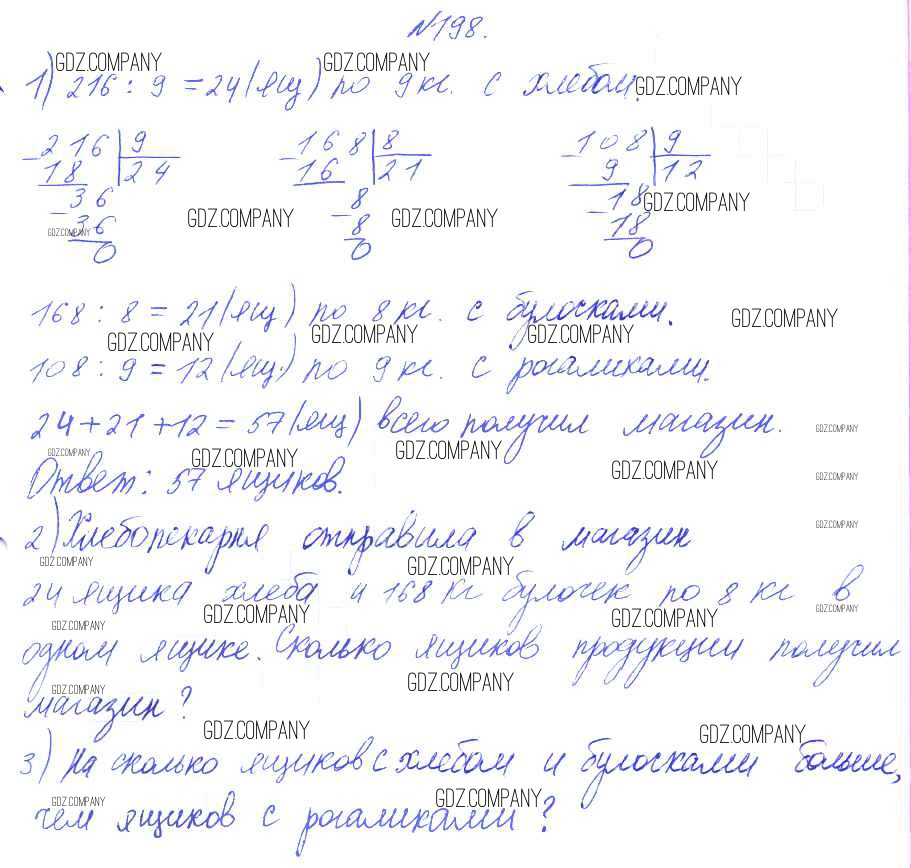 №198.
GDZ.COMPANY GDZ.COMPANY
1) 216 : 9 = 24 (ящ) по 9 кг. с хлебом. GDZ.COMPANY
- 216 | 9 - 168 | 8 - 108 | 9
18 | 24 16 | 21 9 | 12
- 36 - 8 - 18 GDZ.COMPANY
GDZ.COMPANY 36 GDZ.COMPANY 8 GDZ.COMPANY 18
0 0 0
168 : 8 = 21 (ящ) по 8 кг. с булосками. GDZ.COMPANY
GDZ.COMPANY GDZ.COMPANY GDZ.COMPANY
108 : 9 = 12 (ящ.) по 9 кг. с рогаликами.
24 + 21 + 12 = 57 (ящ) всего получил магазин. GDZ.COMPANY
GDZ.COMPANY GDZ.COMPANY GDZ.COMPANY
Ответ: 57 ящиков. GDZ.COMPANY GDZ.COMPANY
2) Хлебопекарня отправила в магазин GDZ.COMPANY
GDZ.COMPANY GDZ.COMPANY
24 ящика хлеба и 168 кг булочек по 8 кг в
GDZ.COMPANY GDZ.COMPANY GDZ.COMPANY GDZ.COMPANY
одном ящике. Сколько ящиков продукции получил
GDZ.COMPANY GDZ.COMPANY
магазин?
GDZ.COMPANY GDZ.COMPANY
3) На сколько ящиков с хлебом и булосками больше,
GDZ.COMPANY GDZ.COMPANY
чем ящиков с рогаликами?